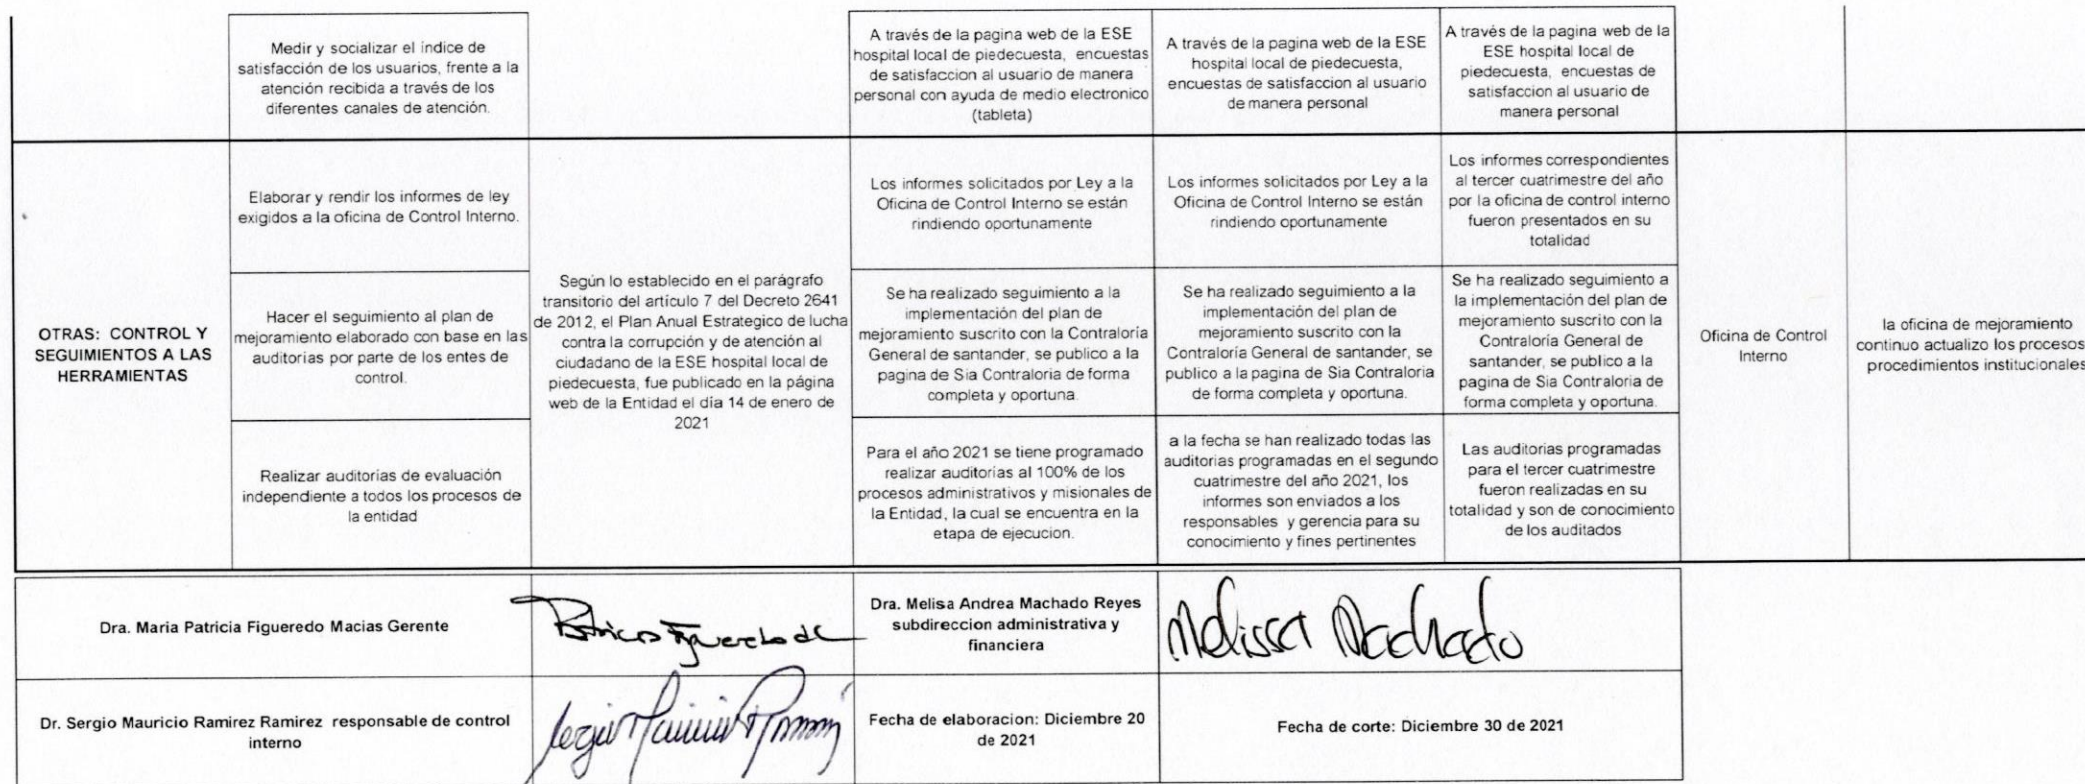 Medir y socializar el indice de
satisfacción de los usuarios, frente a la
atención recibida a través de los
diferentes canales de atención.
A través de la pagina web de la ESE
hospital local de piedecuesta, encuestas
de satisfaccion al usuario de manera
personal con ayuda de medio electronico
(tableta)
A través de la pagina web de la ESE
hospital local de piedecuesta,
encuestas de satisfaccion al usuario
de manera personal
A través de la pagina web de la
ESE hospital local de
piedecuesta, encuestas de
satisfaccion al usuario de
manera personal
OTRAS: CONTROL Y
SEGUIMIENTOS A LAS
HERRAMIENTAS
Elaborar y rendir los informes de ley
exigidos a la oficina de Control Interno.
Según lo establecido en el parágrafo
transitorio del artículo 7 del Decreto 2641
de 2012, el Plan Anual Estrategico de lucha
contra la corrupción y de atención al
ciudadano de la ESE hospital local de
piedecuesta, fue publicado en la página
web de la Entidad el día 14 de enero de
2021
Los informes solicitados por Ley a la
Oficina de Control Interno se están
rindiendo oportunamente
Los informes solicitados por Ley a la
Oficina de Control Interno se están
rindiendo oportunamente
Los informes correspondientes
al tercer cuatrimestre del año
por la oficina de control interno
fueron presentados en su
totalidad
Oficina de Control
Interno
la oficina de mejoramiento
continuo actualizo los procesos
procedimientos institucionales
Hacer el seguimiento al plan de
mejoramiento elaborado con base en las
auditorias por parte de los entes de
control.
Se ha realizado seguimiento a la
implementación del plan de
mejoramiento suscrito con la Contraloría
General de santander, se publico a la
pagina de Sia Contraloria de forma
completa y oportuna.
Se ha realizado seguimiento a la
implementación del plan de
mejoramiento suscrito con la
Contraloría General de santander, se
publico a la pagina de Sia Contraloria
de forma completa y oportuna.
Se ha realizado seguimiento a
la implementación del plan de
mejoramiento suscrito con la
Contraloría General de
santander, se publico a la
pagina de Sia Contraloria de
forma completa y oportuna.
Realizar auditorias de evaluación
independiente a todos los procesos de
la entidad
Para el año 2021 se tiene programado
realizar auditorías al 100% de los
procesos administrativos y misionales de
la Entidad, la cual se encuentra en la
etapa de ejecucion.
a la fecha se han realizado todas las
auditorias programadas en el segundo
cuatrimestre del año 2021, los
informes son enviados a los
responsables y gerencia para su
conocimiento y fines pertinentes
Las auditorias programadas
para el tercer cuatrimestre
fueron realizadas en su
totalidad y son de conocimiento
de los auditados
Dra. Maria Patricia Figueredo Macias Gerente
Patricia Figueredo
Dra. Melisa Andrea Machado Reyes
subdireccion administrativa y
financiera
Melissa Machado
Dr. Sergio Mauricio Ramirez Ramirez responsable de control
interno
Fecha de elaboracion: Diciembre 20
de 2021
Fecha de corte: Diciembre 30 de 2021